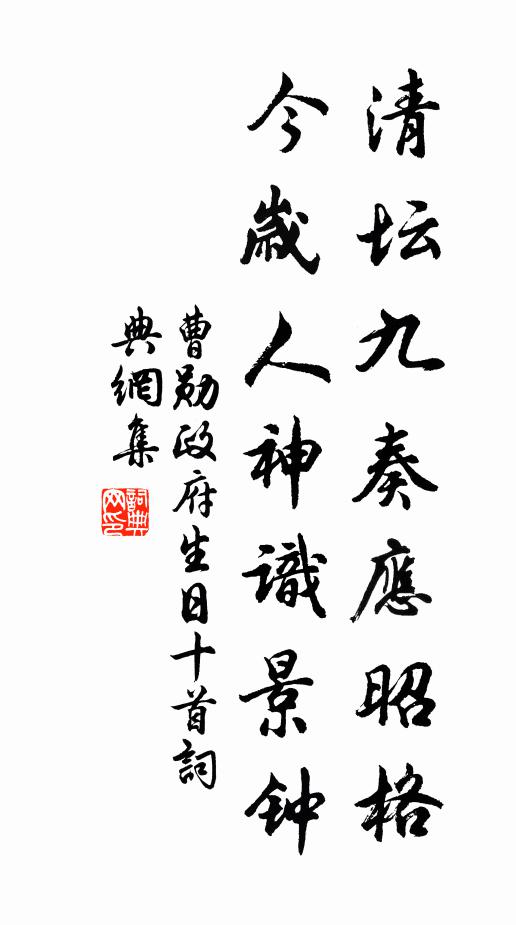 清坛九奏應昭格
今歲人神識景钟
曹勛政府生日十首詞
典網集
詞典
网印